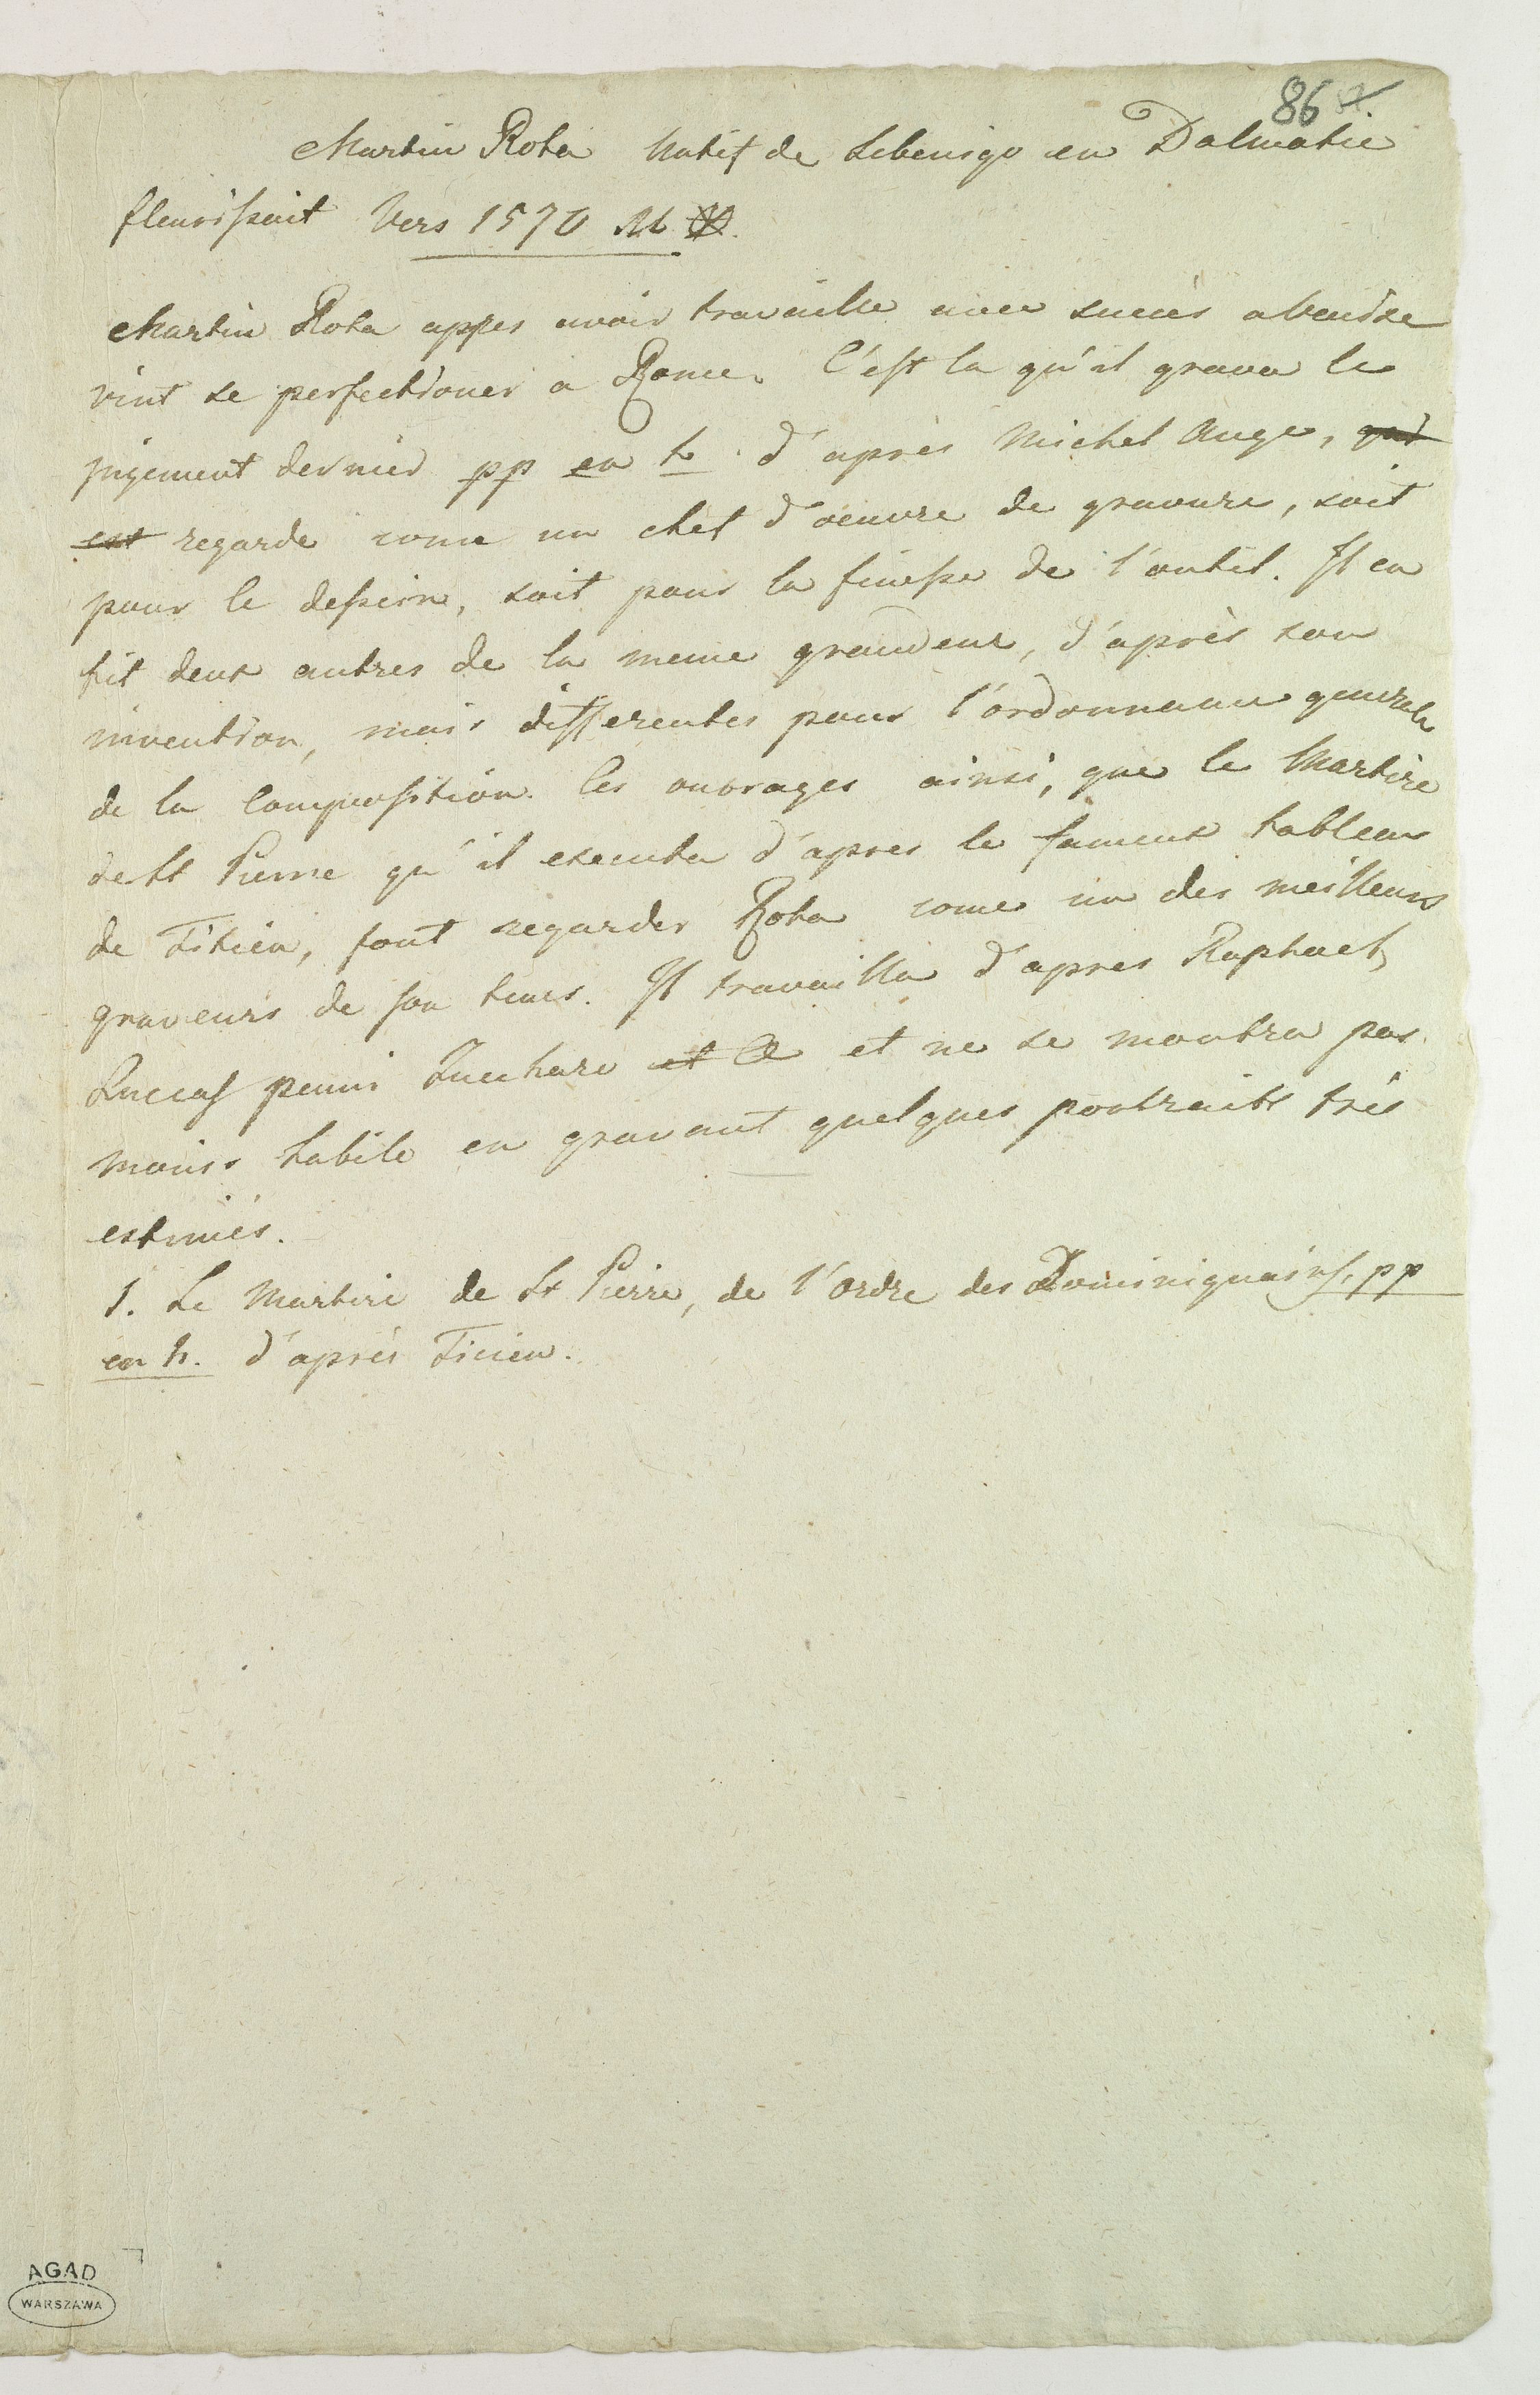 86
Martin Rota Natif de Sebenigo en Dalmatie
fleurissait Vers 1570
Martin Rota appres avoir travaille avec succès a Venise
vint se perfectioner a Rome. C'est la qu'il grava le
jugement dernier pp en h. d'après Michel Ange, qui
est regarde come un chef d'oeuvre de gravure, soit
pour le dessein, soit pour la finesse de l'outil. Il en
fit deux autres de la meme grandeur, d'après son
invention, mais differentes pour l'ordonnance generale
de la Composition. Ces ouvrages ainsi, que le Martire
de St Pierre qu'il executa d'apres le fameux tableau
de Titien, font regarder Rota come un des meilleurs
graveurs de son tems. Il travailla d'apres Raphael,
Luccas penni Zuccharo et et ne se montra pas
moins habile en gravant quelques portraits très
estimés.
1. Le Martire de St Pierre, de l'Ordre des Dominiquains, pp
en h. d'après Ticien.
AGAD
WARSZAWA